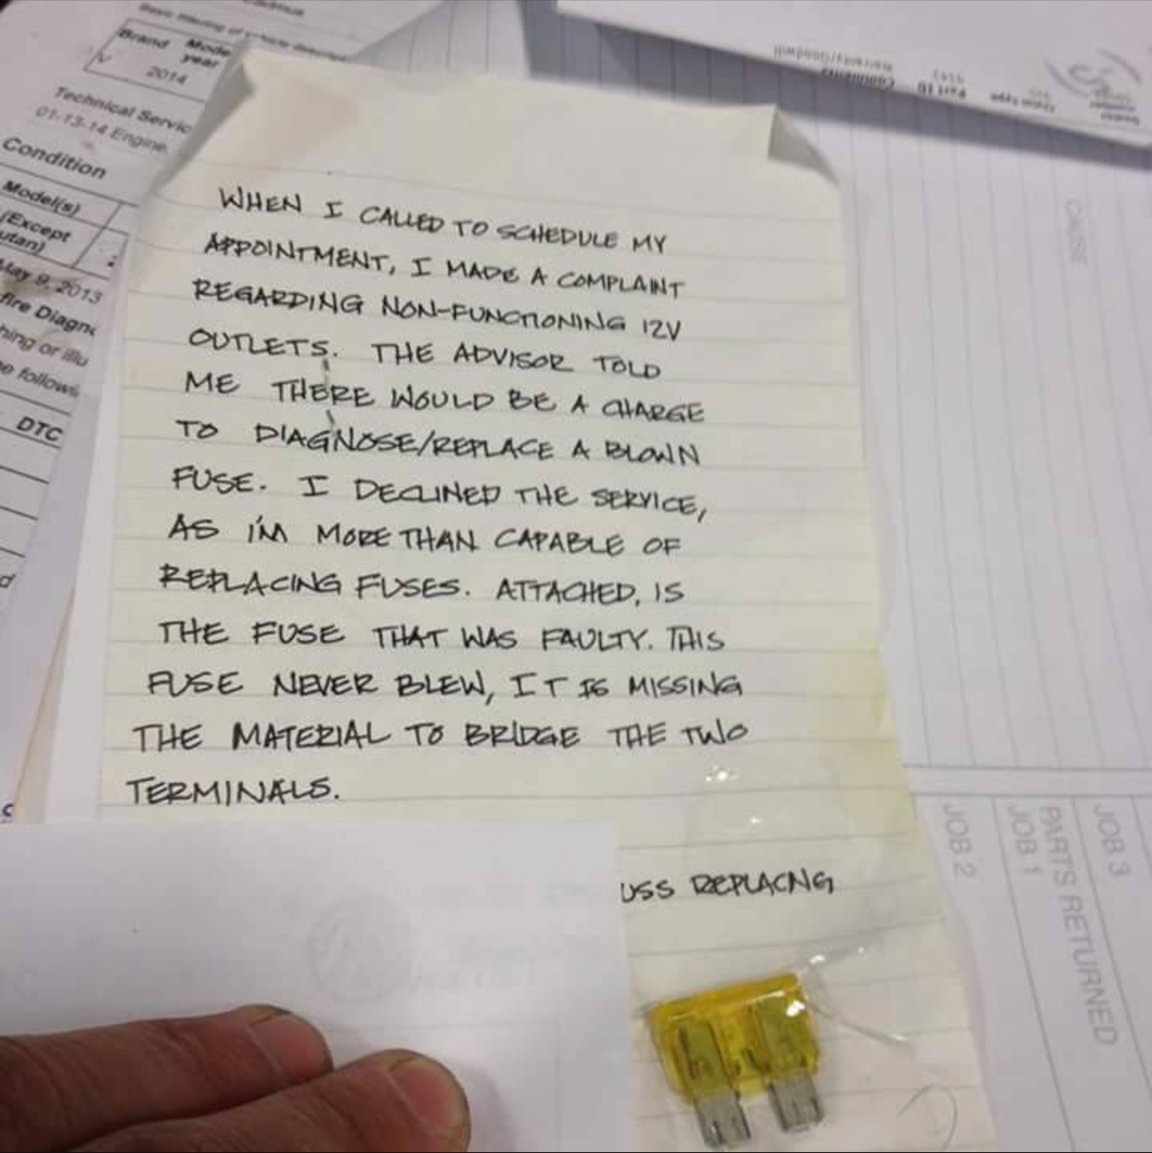 Brand
Mode
year
2014
Technical Servic
01-13-14 Engine
Condition
Model(s)
(Except
utan)
May 9, 2013
fire Diagn
hing or illu
e follows
DTC
Warranty/Goodwill
Comments
Part ID
CAUSE
WHEN I CALLED TO SCHEDULE MY
APPOINTMENT, I MADE A COMPLAINT
REGARDING NON-FUNCTIONING 12V
OUTLETS. THE ADVISOR TOLD
ME THERE WOULD BE A CHARGE
TO DIAGNOSE/REPLACE A BLOWN
FUSE. I DECLINED THE SERVICE,
AS I'M MORE THAN CAPABLE OF
REPLACING FUSES. ATTACHED, IS
THE FUSE THAT WAS FAULTY. THIS
FUSE NEVER BLEW, IT IS MISSING
THE MATERIAL TO BRIDGE THE TWO
TERMINALS.
USS REPLACNG
JOB 2
PARTS RETURNED
JOB 1
JOB 3